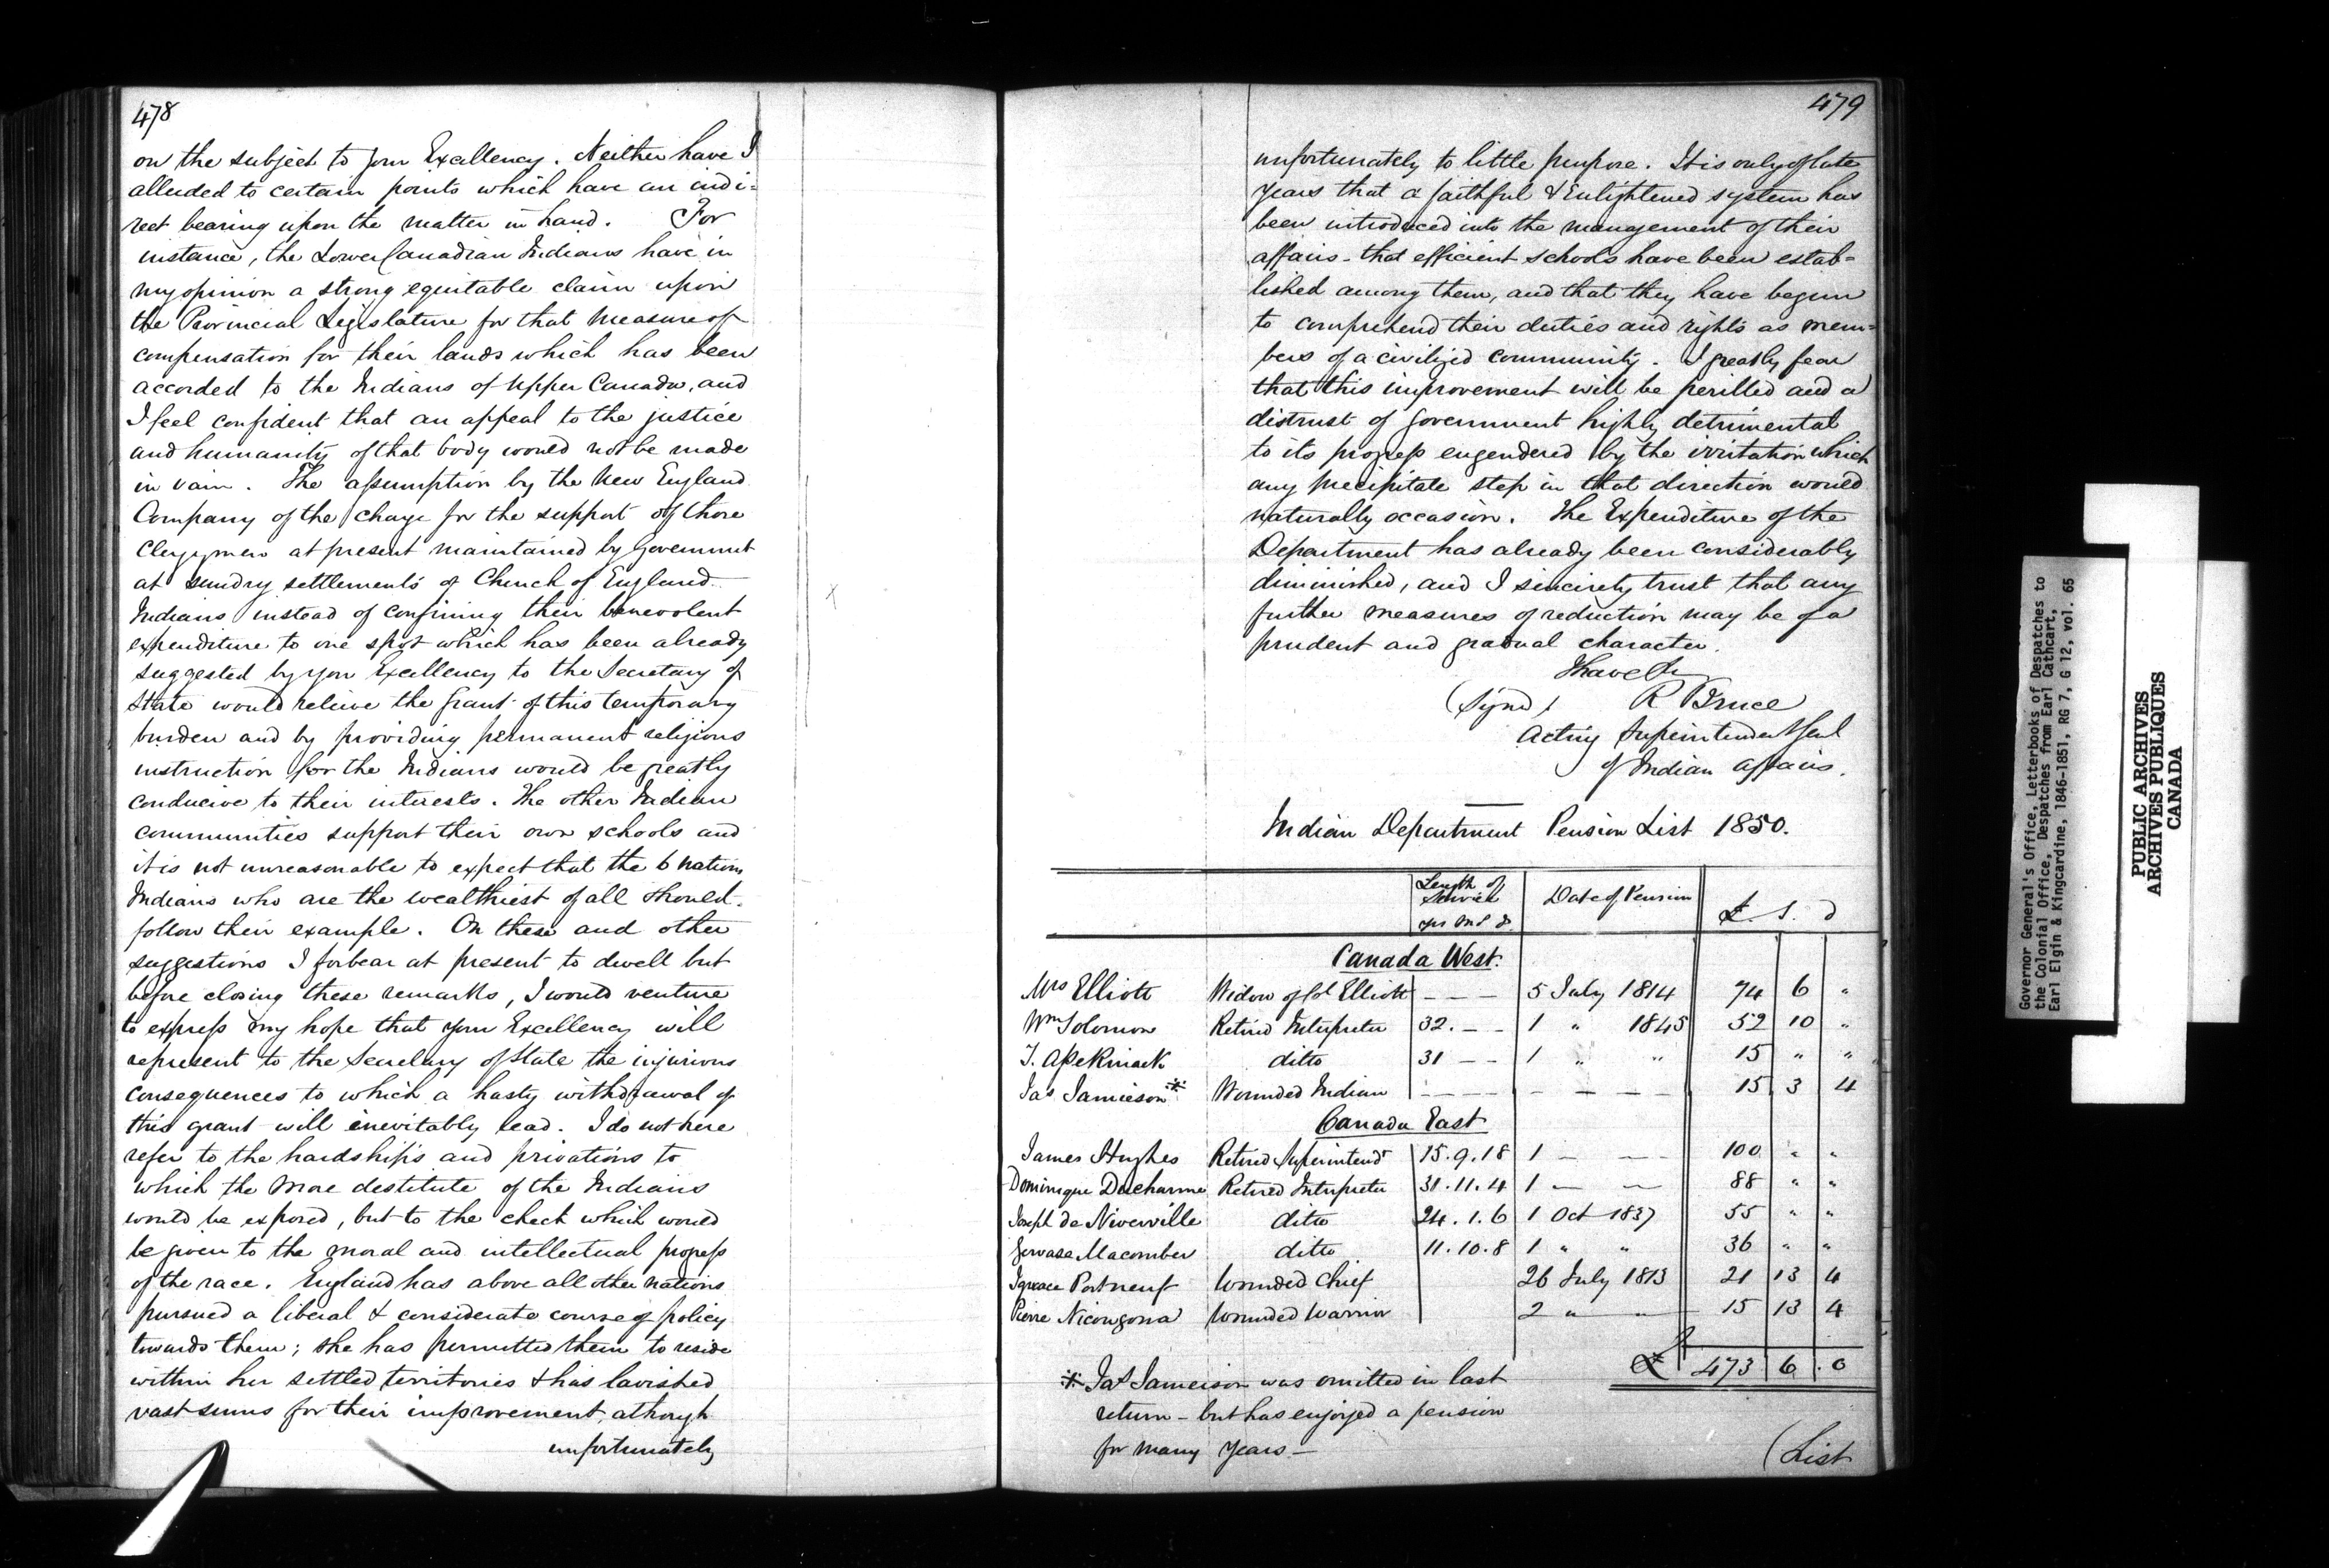 478
on the subject to your Excellency. Neither have I
alluded to certain points which have an indi=
rect bearing upon the matter in hand. For
instance, the Lower Canadian Indians have in
my opinion a strong equitable claim upon
the Provincial Legislature for that measure of
compensation for their lands which has been
accorded to the Indians of Upper Canada, and
I feel confident that an appeal to the justice
and humanity of that body would not be made
in vain. The assumption by the New England
Company of the charge for the support of those
Clergymen at present maintained by Government
at sundry settlements of Church of England
Indians instead of confining their benevolent
expenditure to one spot which has been already
suggested by your Excellency to the Secretary of
State would relieve the Grant of this temporary
burden and by providing permanent religious
instruction for the Indians would be greatly
conducive to their interests. The other Indian
communities support their own schools and
it is not unreasonable to expect that the 6 nations
Indians who are the wealthiest of all should
follow their example. On these and other
suggestions I forbear at present to dwell but
before closing these remarks, I would venture
to express my hope that your Excellency will
represent to the Secretary of State the injurious
consequences to which a hasty withdrawal of
this grant will inevitably lead. I do not here
refer to the hardships and privations to
which the more destitute of the Indians
would be exposed, but to the check which would
be given to the moral and intellectual progress
of the race. England has above all other nations
pursued a liberal & considerate course of policy
towards them; she has permitted them to reside
within her settled territories & has lavished
vast sums for their improvement, although
unfortunately
479
unfortunately to little purpose. It is only of late
years that a faithful & Enlightened system has
been introduced into the management of their
affairs - that efficient schools have been estab=
lished among them, and that they have begun
to comprehend their duties and rights as mem=
bers of a civilized community. I greatly fear
that this improvement will be perilled and a
distrust of Government highly detrimental
to its progress engendered by the irritation which
any precipitate step in that direction would
naturally occasion. The Expenditure of the
Department has already been considerably
diminished, and I sincerely trust that any
further measures of reduction may be of a
prudent and gradual character.
I have &c
(Signd) R Bruce
Acting Superintendent Genl
of Indian Affairs.
Indian Department Pension List 1850.
Length of Service yrs ms d. Date of Pension £. s. d
Canada West.
Mrs Elliott Widow of Col Elliott - - - 5 July 1814 74 6 "
Wm Solomon Retired Interpreter 32. - - 1 " 1845 52 10 "
ditto 31 - - 1 " " 15 " "
Jas Jamieson * Wounded Indian - - - - - - - - 15 3 4
Canada East
James Hughes Retired Superintendt 15.9.18 1 - - - 100 " "
Dominique Ducharme Retired Interpreter 31.11.4 1 - - 88 " "
Joseph de Niverville ditto 24.1.6 1 Oct 1837 55 " "
Gervase Macomber ditto 11.10.8 1 " " 36 " "
Ignace Portneuf Wounded Chief 26 July 1813 21 13 4
Pierre Nicowgona Wounded Warrior 2 " " 15 13 4
£ 473 6 . 0
* Jas Jameison was omitted in last
return - but has enjoyed a pension
for many years -
(List
Governor General's Office, Letterbooks of Despatches to
the Colonial Office, Despatches from Earl Cathcart,
Earl Elgin & Kingcardine, 1846-1851, RG 7, G 12, vol. 65
PUBLIC ARCHIVES
ARCHIVES PUBLIQUES
CANADA